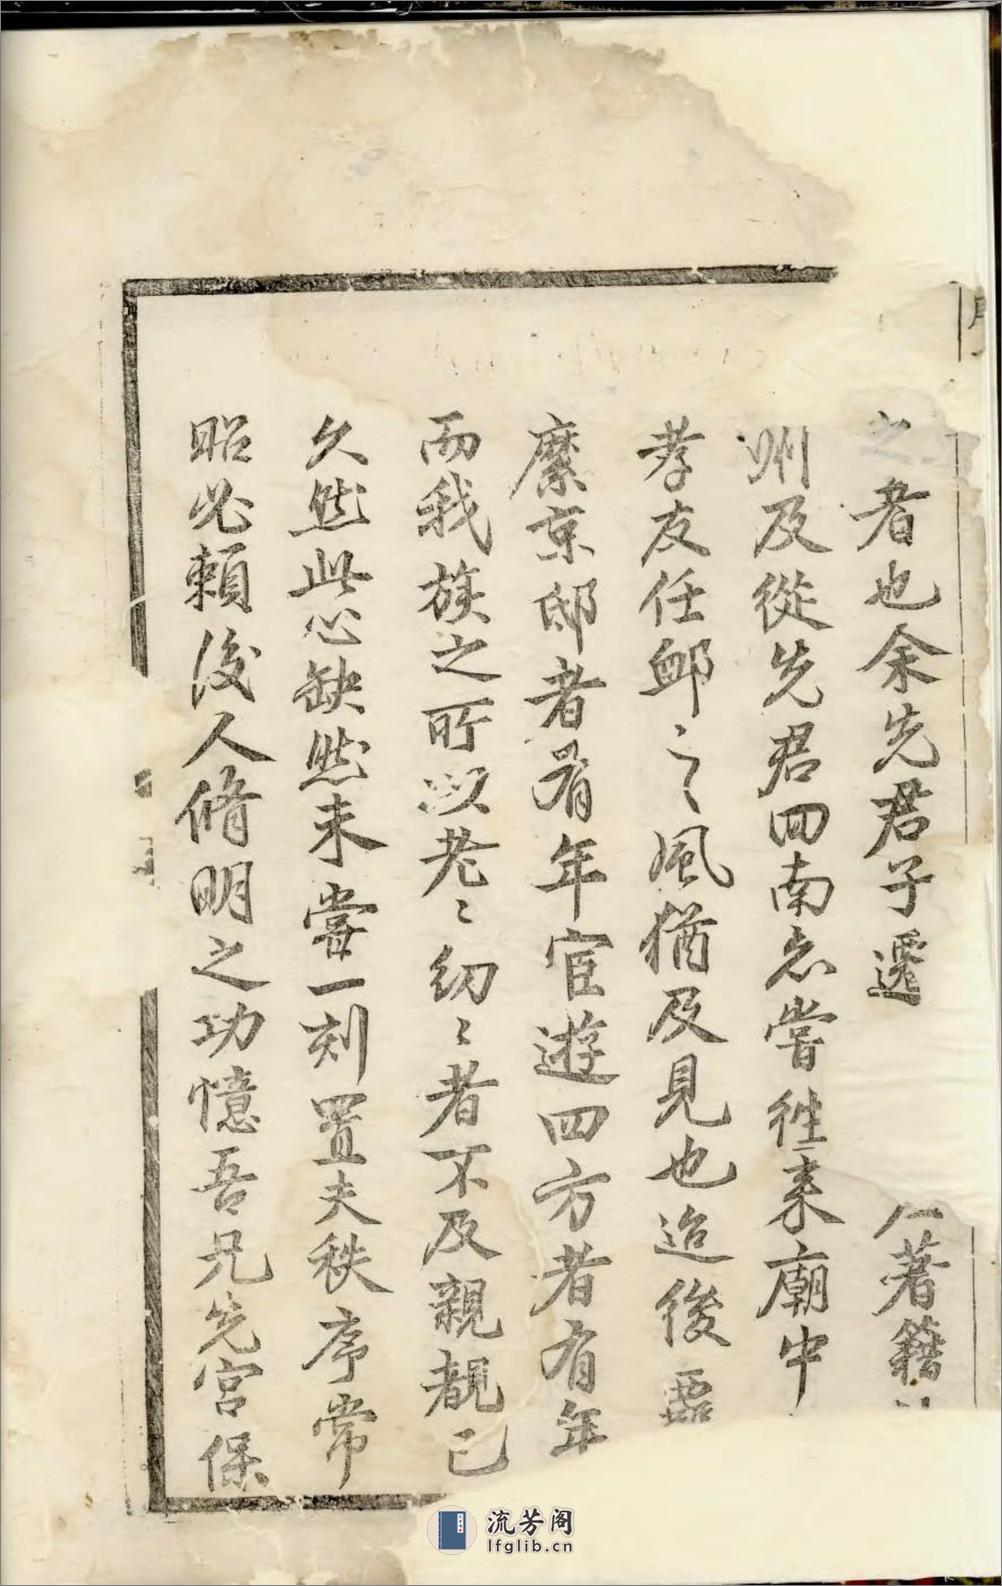 之者也余先君子遷人著籍
州及從先君回南忽嘗往来廟中
孝友任卹之風猶及見也迨後
縻京邸者有年宦遊四方者有年
而我族之所以老〻幼〻者不及親覩已
久然此心缺然未嘗一刻置夫秩序常
昭必賴後人脩明之功憶吾兄先宫保
流芳阁
lfglib.cn